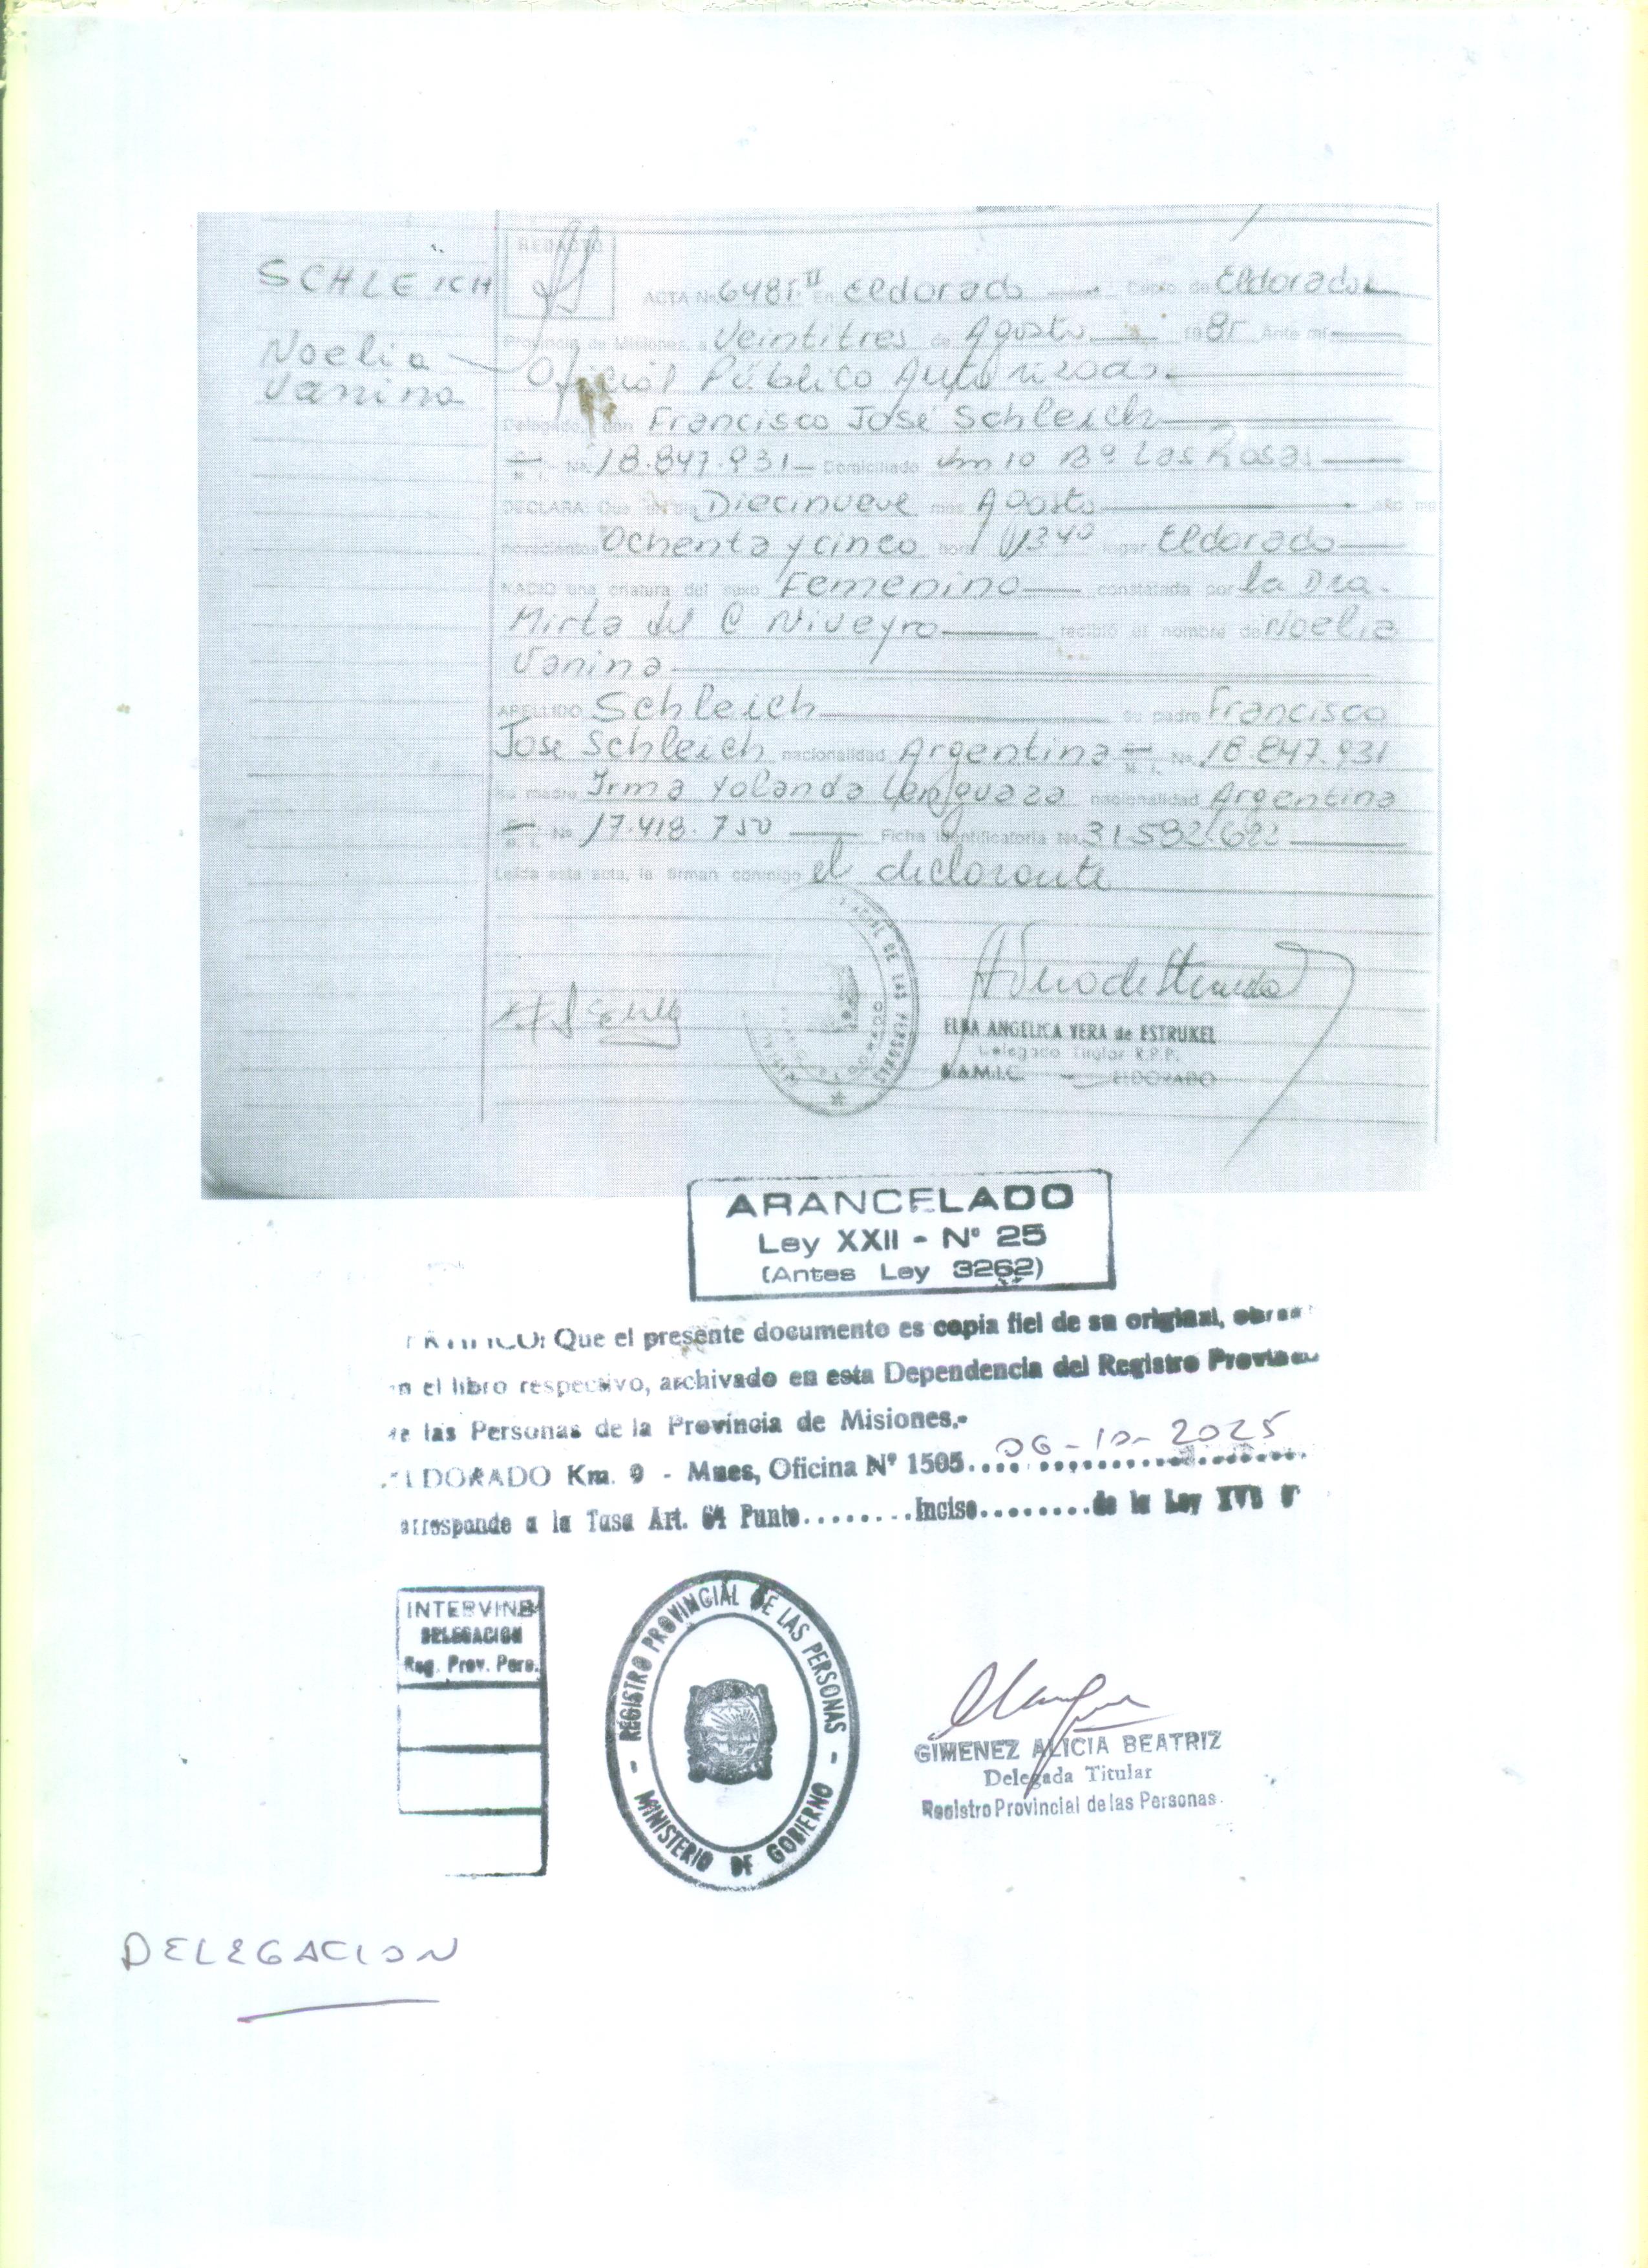 SCHLEICH
Noelia
Vanina
REDACTO
ACTA Nº 648 T. II En Eldorado Depto. de Eldorado
Provincia de Misiones, a Veintitres de Agosto 1985 Ante mí
Oficial Público Autorizado.
Delegado, don Francisco José Schleich
M. I. No. 18.847.931 Domiciliado Km 10 Bº Las Rosas
DECLARA: Que el día Diecinueve mes Agosto año mil
novecientos Ochenta y cinco hora 13.40 lugar Eldorado
NACIO una criatura del sexo Femenino constatada por la Dra.
Mirta del C Niveyro recibió el nombre de Noelia
Vanina
APELLIDO Schleich su padre Francisco
Jose Schleich nacionalidad Argentina M. I. No. 18.847.931
su madre Irma Yolanda nacionalidad Argentina
M. I. No. 17.418.750 Ficha Identificatoria No. 31.582.622
Leída esta acta, la firman conmigo el declarante
DE LAS PERSONAS
ELBA ANGELICA VERA de ESTRUKEL
Delegado Titular R.P.P.
S.A.M.I.C. - ELDORADO
ARANCELADO
Ley XXII - Nº 25
(Antes Ley 3262)
Que el presente documento es copia fiel de su original,
el libro respectivo, archivado en esta Dependencia del Registro
las Personas de la Provincia de Misiones.-
ELDORADO Km. 9 - Mnes, Oficina Nº 1505.... 06-10-2025
a la Tasa Art. 64 Punto........Inciso........de la Ley XVI
INTERVINE
DELEGACION
Reg. Prov. Pers.
REGISTRO PROVINCIAL DE LAS PERSONAS
- MINISTERIO DE GOBIERNO -
GIMENEZ ALICIA BEATRIZ
Delegada Titular
Registro Provincial de las Personas.
DELEGACION